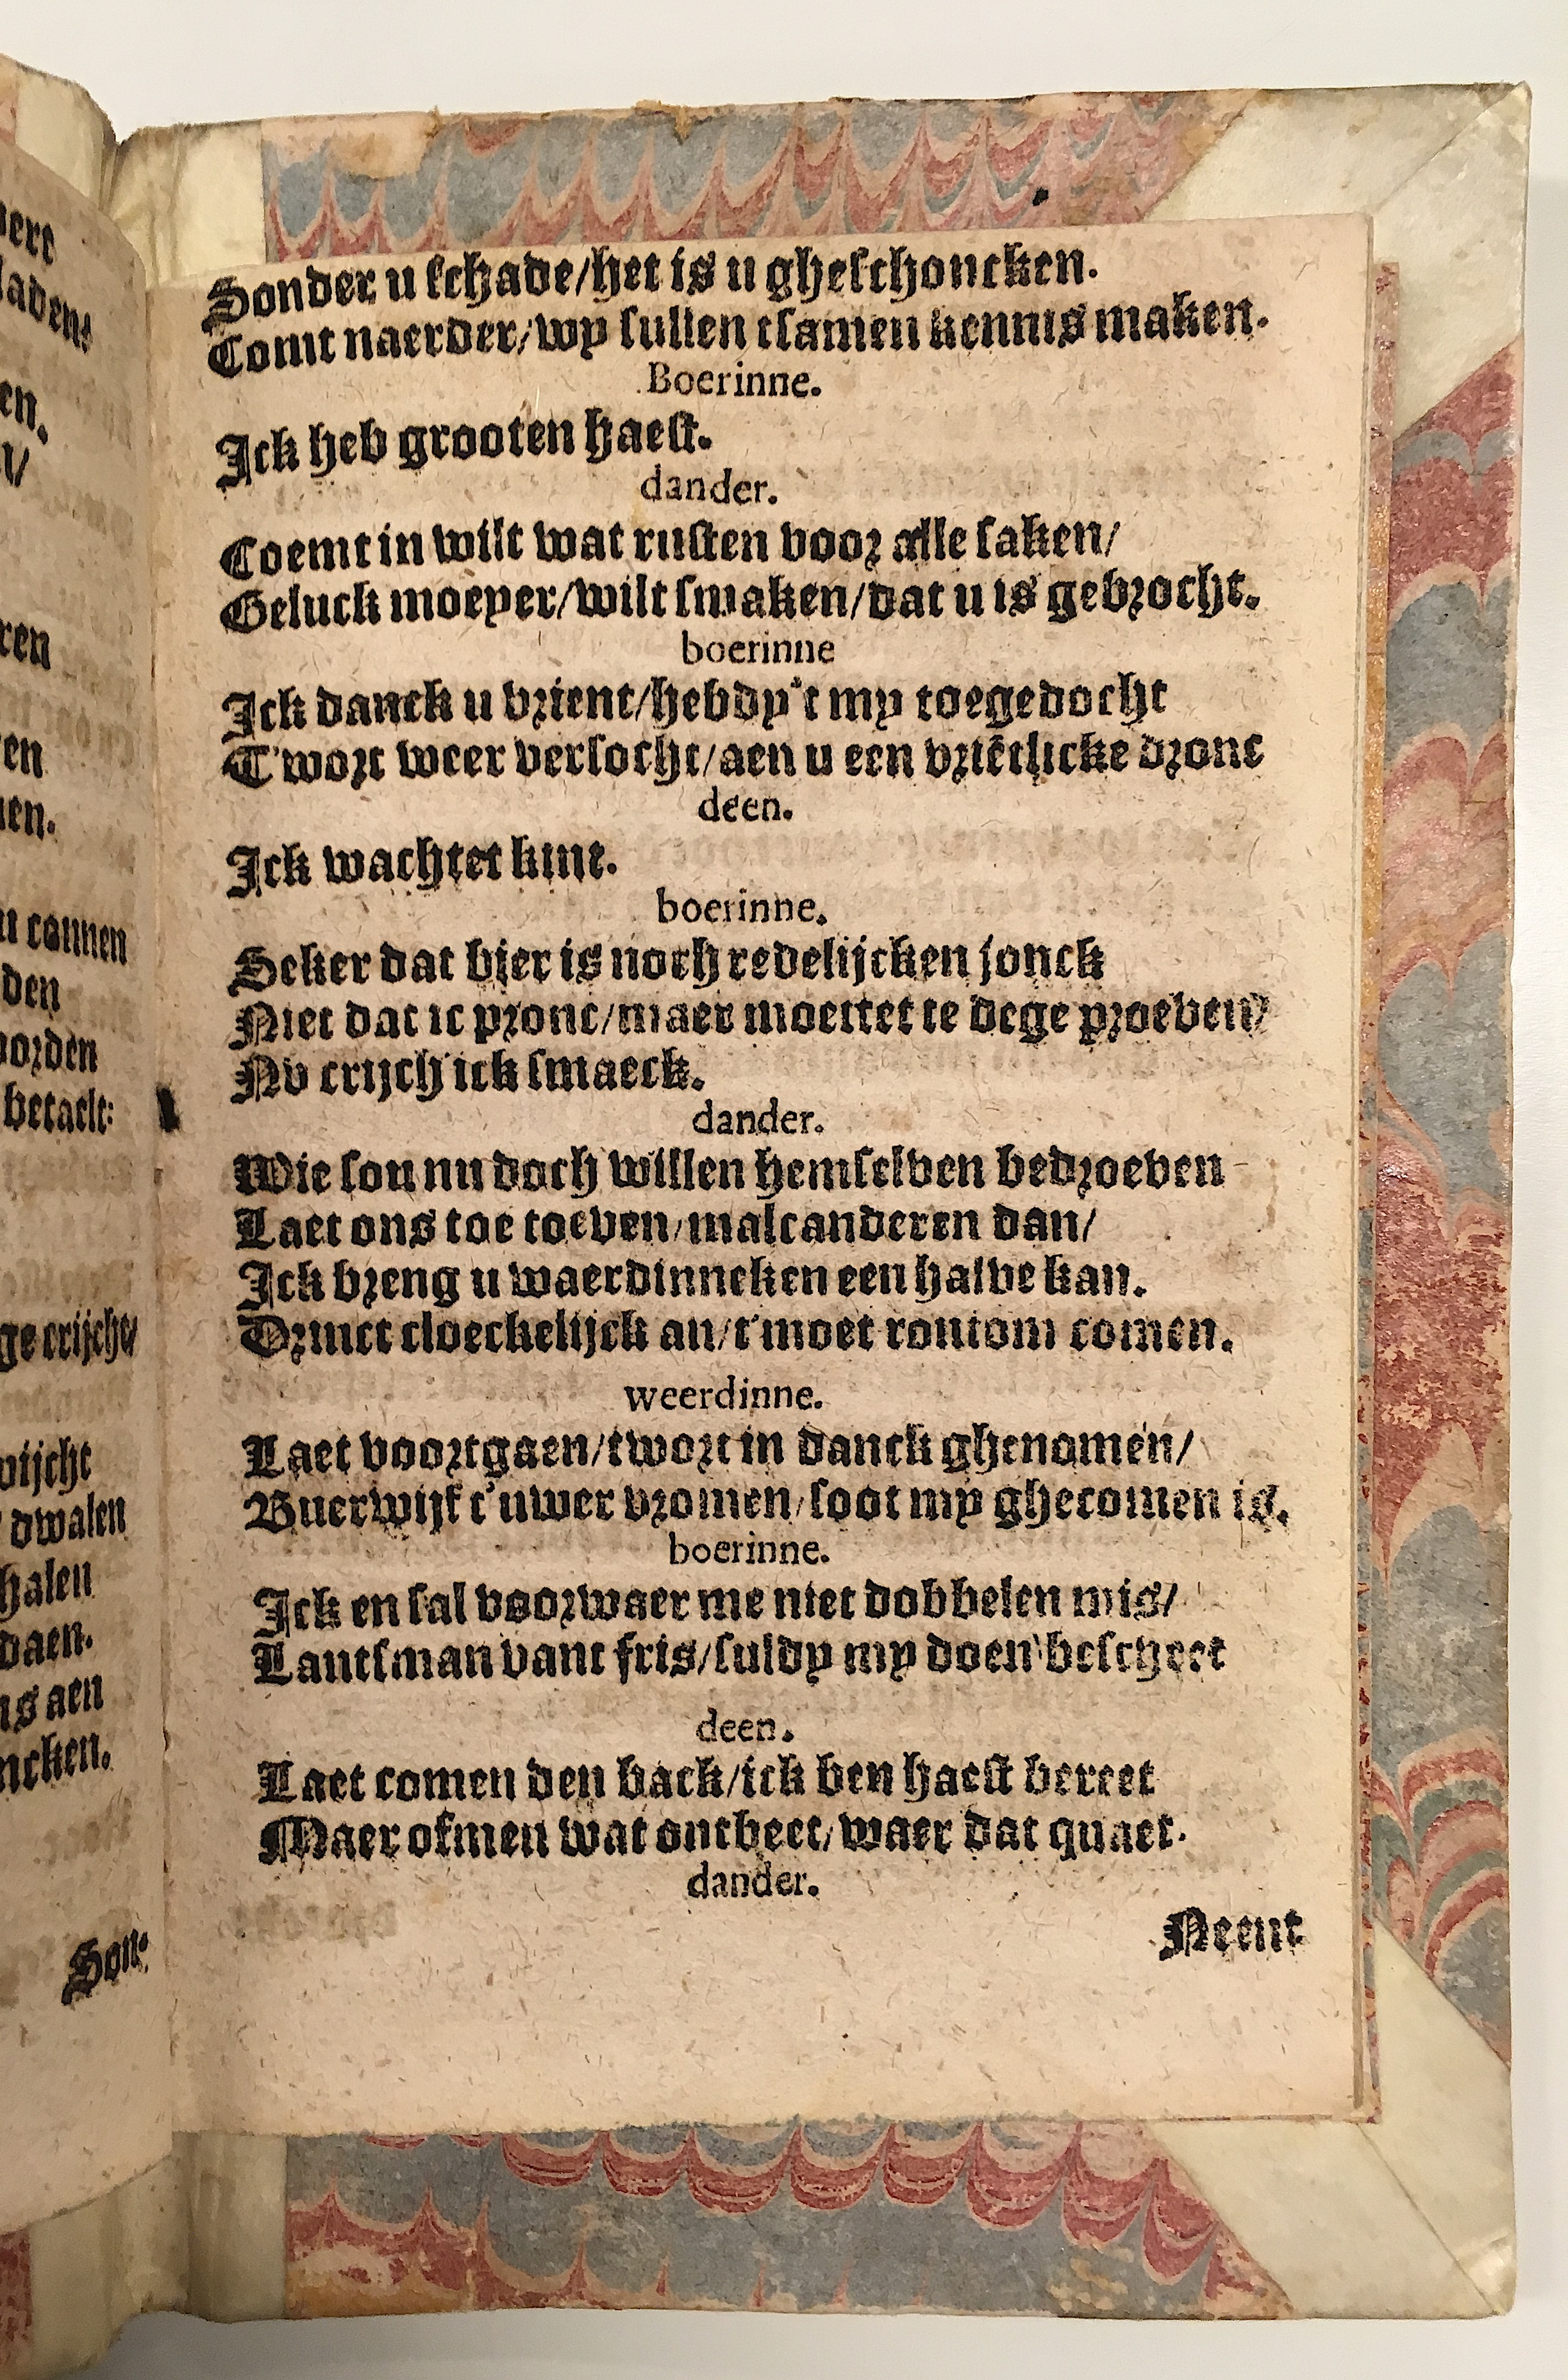 Sonder u schade/het is u gheschoncken.
Comt naerder/wy sullen tsamen kennis maken.
Boerinne.
Ick heb grooten haest.
dander.
Coemt in wilt wat rusten voor alle saken/
Geluck moeyer/wilt smaken/dat u is gebrocht.
boerinne
Ick danck u vrient/hebdy't my toegedocht
T'wort weer versocht/aen u een vriētlicke dronc
deen.
Ick wachtet kint.
boerinne.
Seker dat bier is noch redelijcken jonck
Niet dat ic pronc/maer moettet te dege proeven/
Nv crijch ick smaeck.
dander.
Wie sou nu doch willen hemselven bedroeven
Laet ons toe toeven/malcanderen dan/
Ick breng u waerdinneken een halve kan.
Drinct cloeckelijck an/t'moet rontom comen.
weerdinne.
Laet voortgaen/twort in danck ghenomen/
Buerwijf t'uwer vromen/soot my ghecomen is.
boerinne.
Ick en sal voorwaer me niet dobbelen mis/
Lantsman vant fris/suldy my doen bescheet
deen.
Laet comen den back/ick ben haest bereet
Maer ofmen wat ontbeet/waer dat quaet.
dander.
Neent
nert
laden/
en.
ren
en
nen.
u connen
den
oorden
betaelt:
ge crijcht/
dwalen
halen
daen.
ns aen
ncken.
Son-